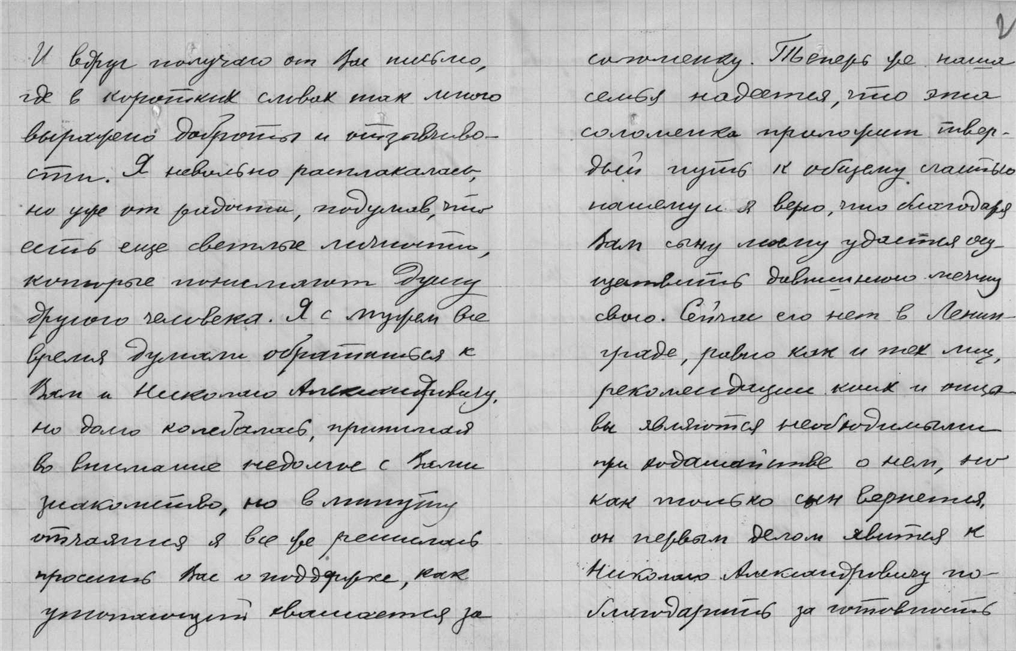 И вдруг получаю от Вас письмо,
где в коротких словах так много
выражено доброты и отзывчиво-
сти. Я невольно расплакалась,
но уже от радости, подумав, что
есть еще светлые личности,
которые понимают душу
другого человека. Я с мужем все
время думали обратиться к
Вам и Николаю Александровичу,
но долго колебалась, принимая
во внимание недолгое с Вами
знакомство, но в минуту
отчаяния я все же решилась
просить Вас о поддержке, как
утопающий хватается за
2
соломенку. Теперь же наша
семья надеется, что эта
соломенка приложит твер-
дый путь к общему счастью
нашему и я верю, что благодаря
Вам сыну моему удастся осу-
ществить давнишнюю мечту
свою. Сейчас его нет в Ленин-
граде, равно как и тех лиц,
рекомендации коих и отзы-
вы являются необходимыми
при ходатайстве о нем, но
как только сын вернется,
он первым делом явится к
Николаю Александровичу по-
благодарить за готовность